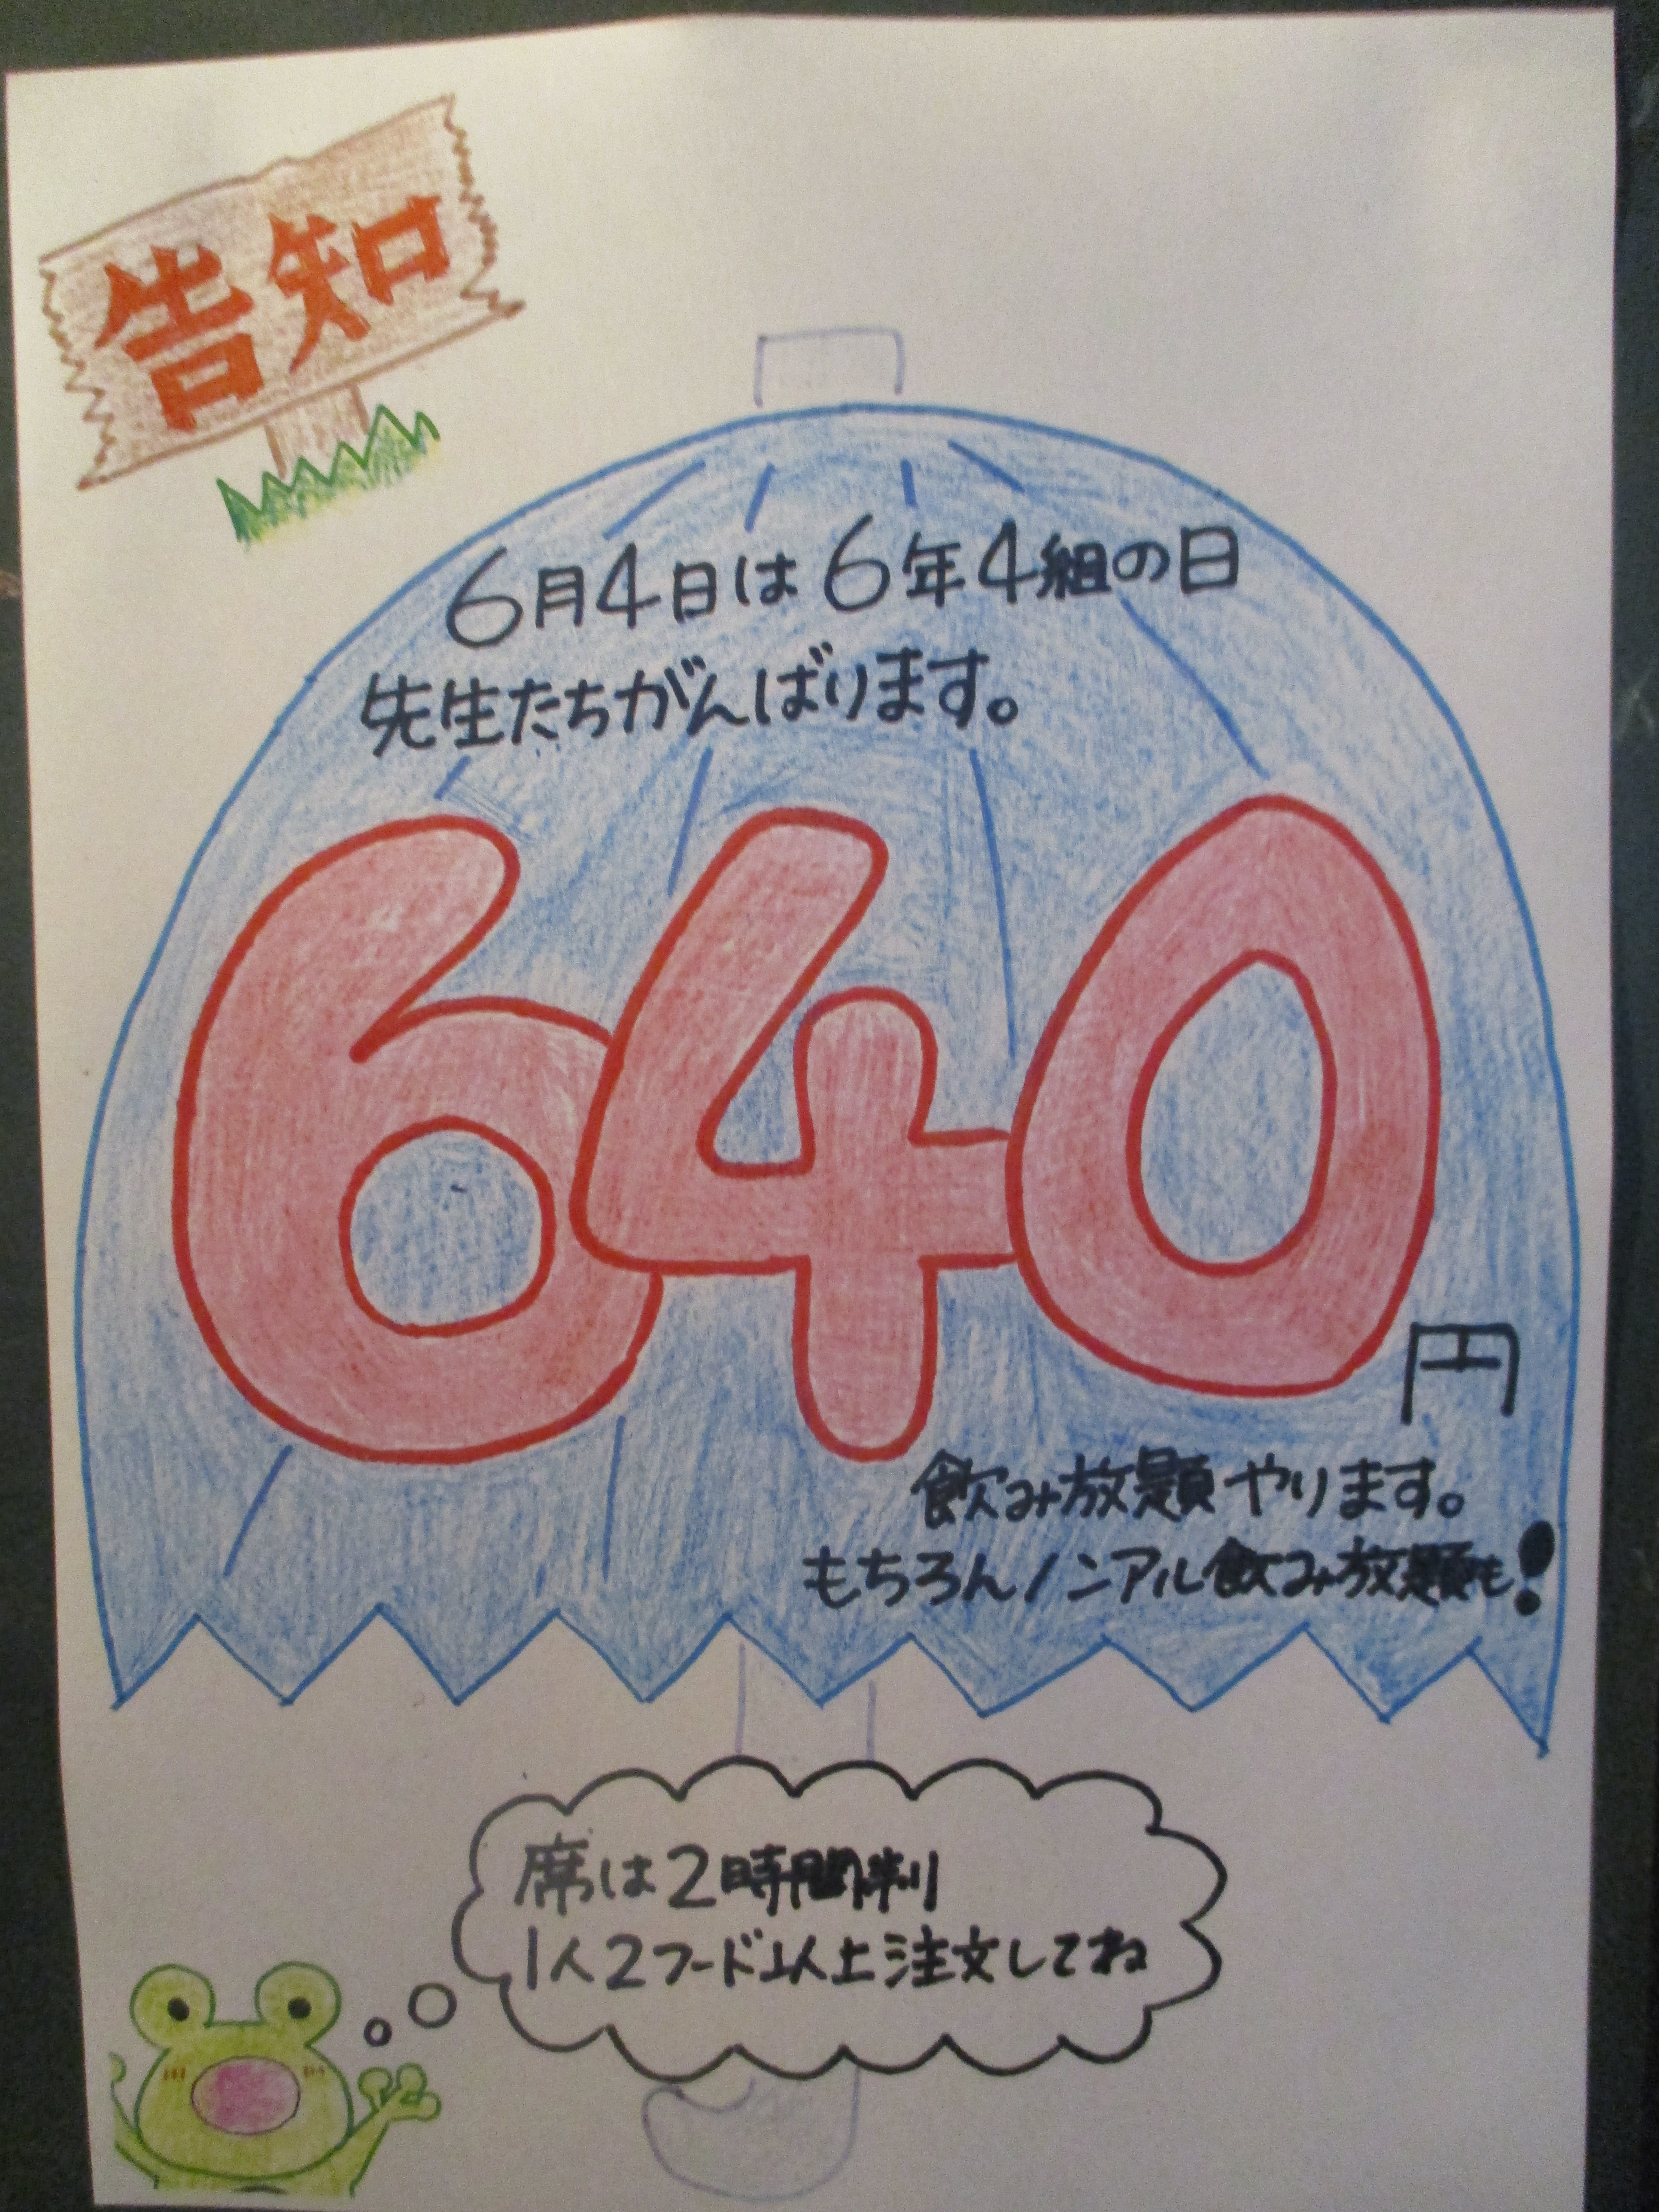 告知
6月4日は6年4組の日
先生たちがんばります。
640円
飲み放題やります。
もちろんノンアル飲み放題も!
席は2時間制
1人2フード以上注文してね